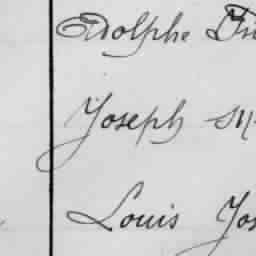 Adolphe
Joseph
Louis Jos